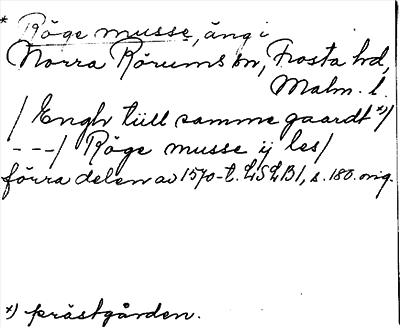 * Röge musse, äng i
Norra Rörums sn, Frosta hd,
Malm. l.
/ Engh tüll samme gaardt *)/
---/ Röge musse ij les/
förra delen av 1570-t. LSLB1, s. 180. orig.
*) prästgården.